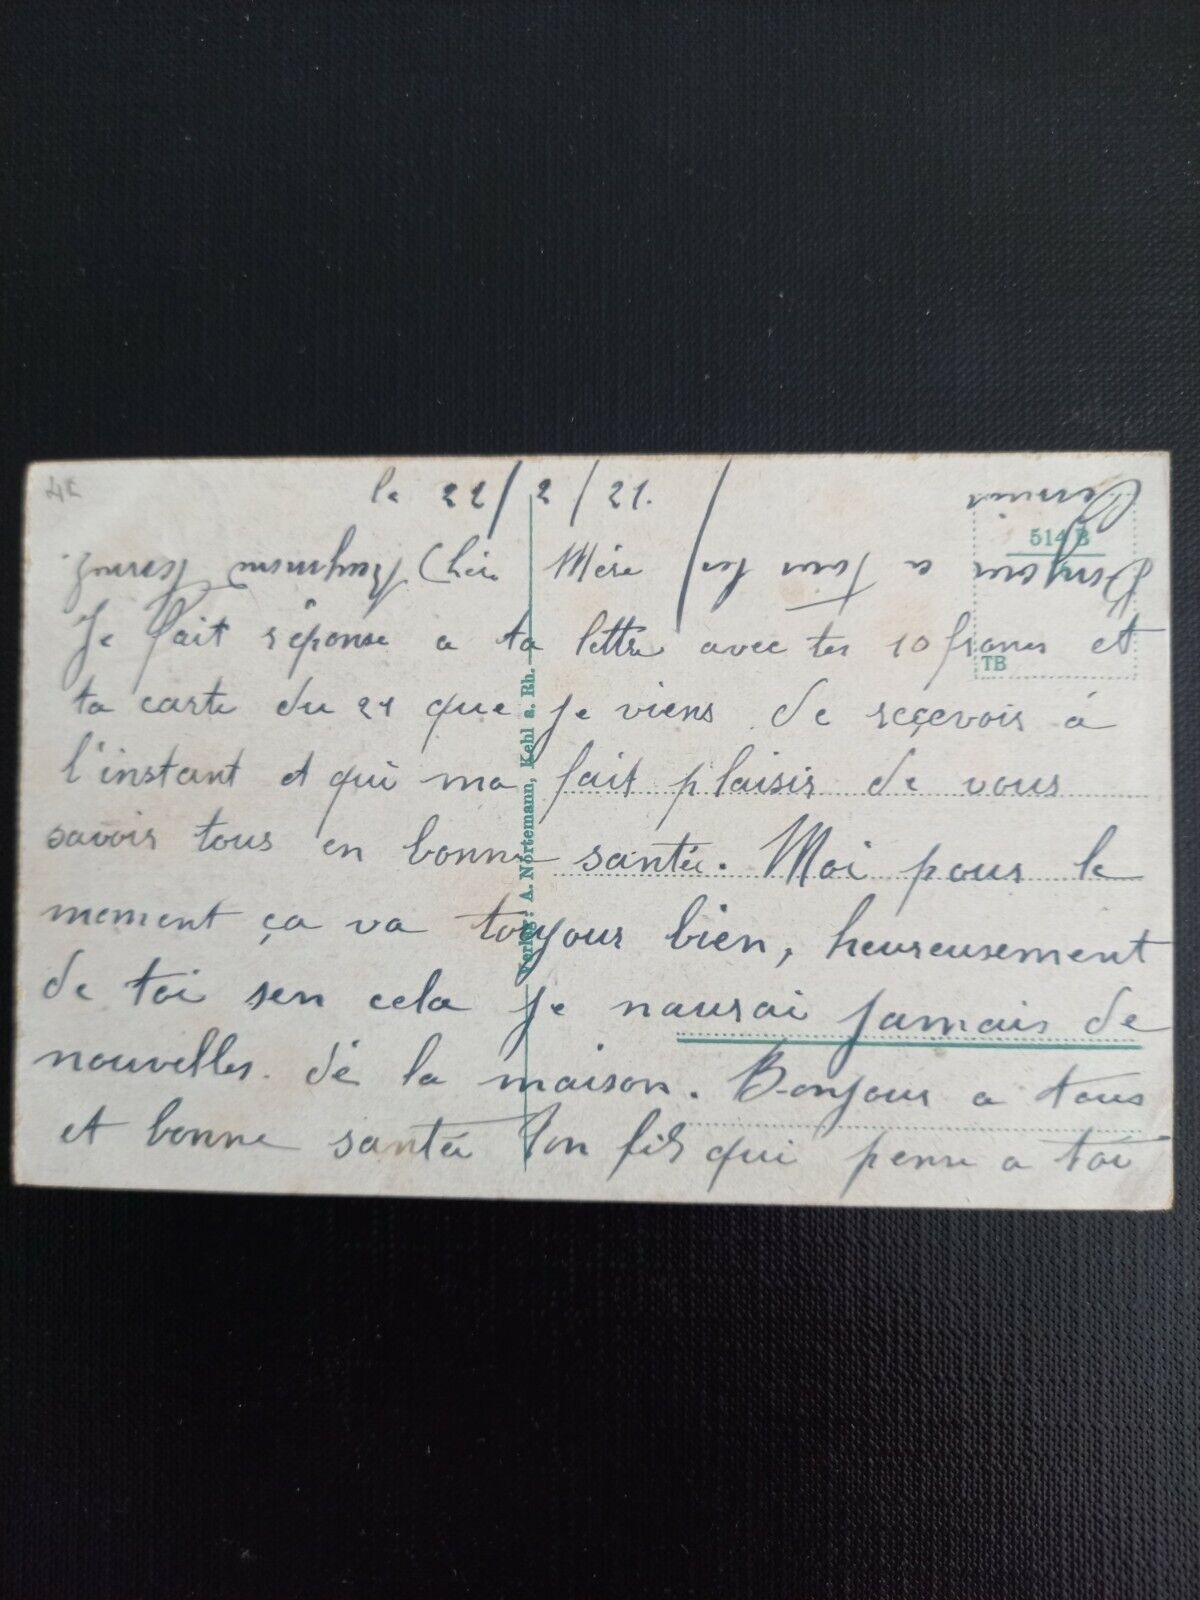 4€
le 22/2/21.
Chère Mère
Je fait réponse a ta lettre avec tes 10 francs et
ta carte du 21 que je viens de reçevoir à
l'instant et qui ma fait plaisir de vous
savoir tous en bonne santée. Moi pour le
moment ça va toujour bien, heureusement
de toi sen cela je naurai jamais de
nouvelles. dé la maison. Bonjour a tous
et bonne santée ton fils qui pense a toi
Bonjour a tous les
Raymond
514 B
TB
Verlag: A. Nortemann, Kehl a. Rh.